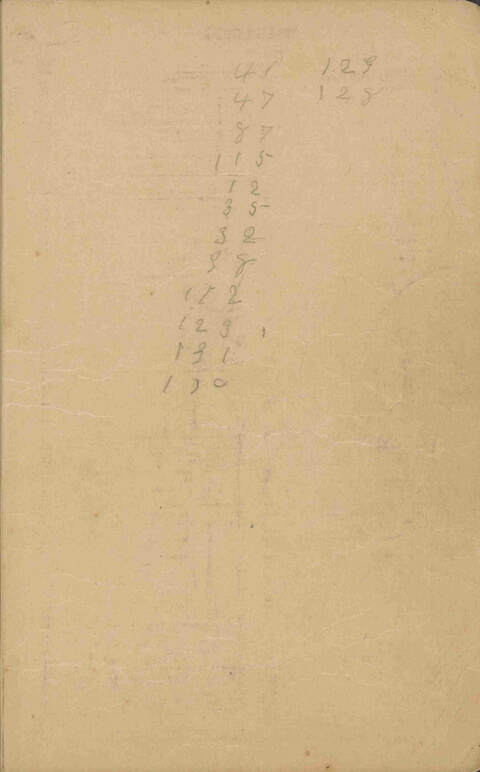 41 129
47 128
87
115
12
35
32
38
112
123
131
130